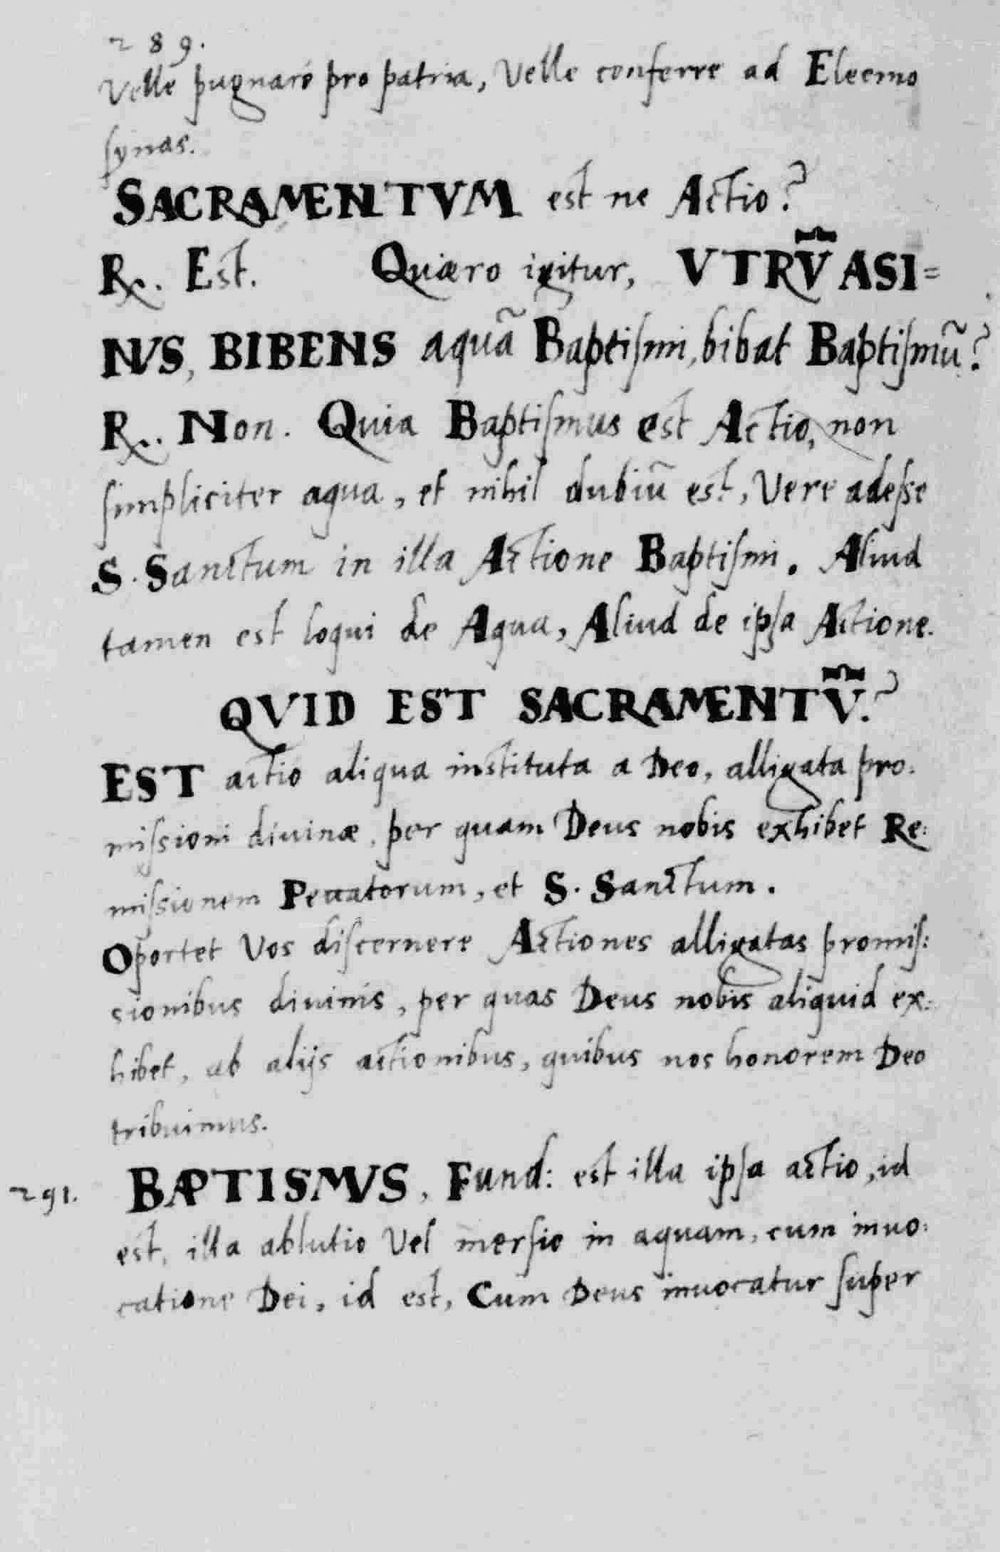 289.
Velle pugnare pro patria, Velle conferre ad Eleemo
synas.
SACRAMENTVM est ne Actio?
R. Est. Quæro igitur, VTRV̄ ASI=
NVS, BIBENS aquã Baptiſmi, bibat Baptiſmũ?
R. Non. Quia Baptiſmus est Actio, non
ſimpliciter aqua, et nihil dubiũ est, Vere adeſse
S. Sanctum in illa Actione Baptiſmi. Aliud
tamen est loqui de Aqua, Aliud de ipſa Actione.
QVID EST SACRAMENTV̄?
EST actio aliqua instituta a Deo, alligata pro:
miſsioni diuinæ, per quam Deus nobis exhibet Re:
miſsionem Peccatorum, et S. Sanctum.
Oportet Vos diſcernere Actiones alligatas promiſ:
sionibus diuinis, per quas Deus nobis aliquid ex:
hibet, ab alijs actionibus, quibus nos honorem Deo
tribuimus.
291. BAPTISMVS, Fund: est illa ipſa actio, id
est, illa ablutio Vel merſio in aquam, cum inuo:
catione Dei, id est, Cum Deus inuocatur ſuper